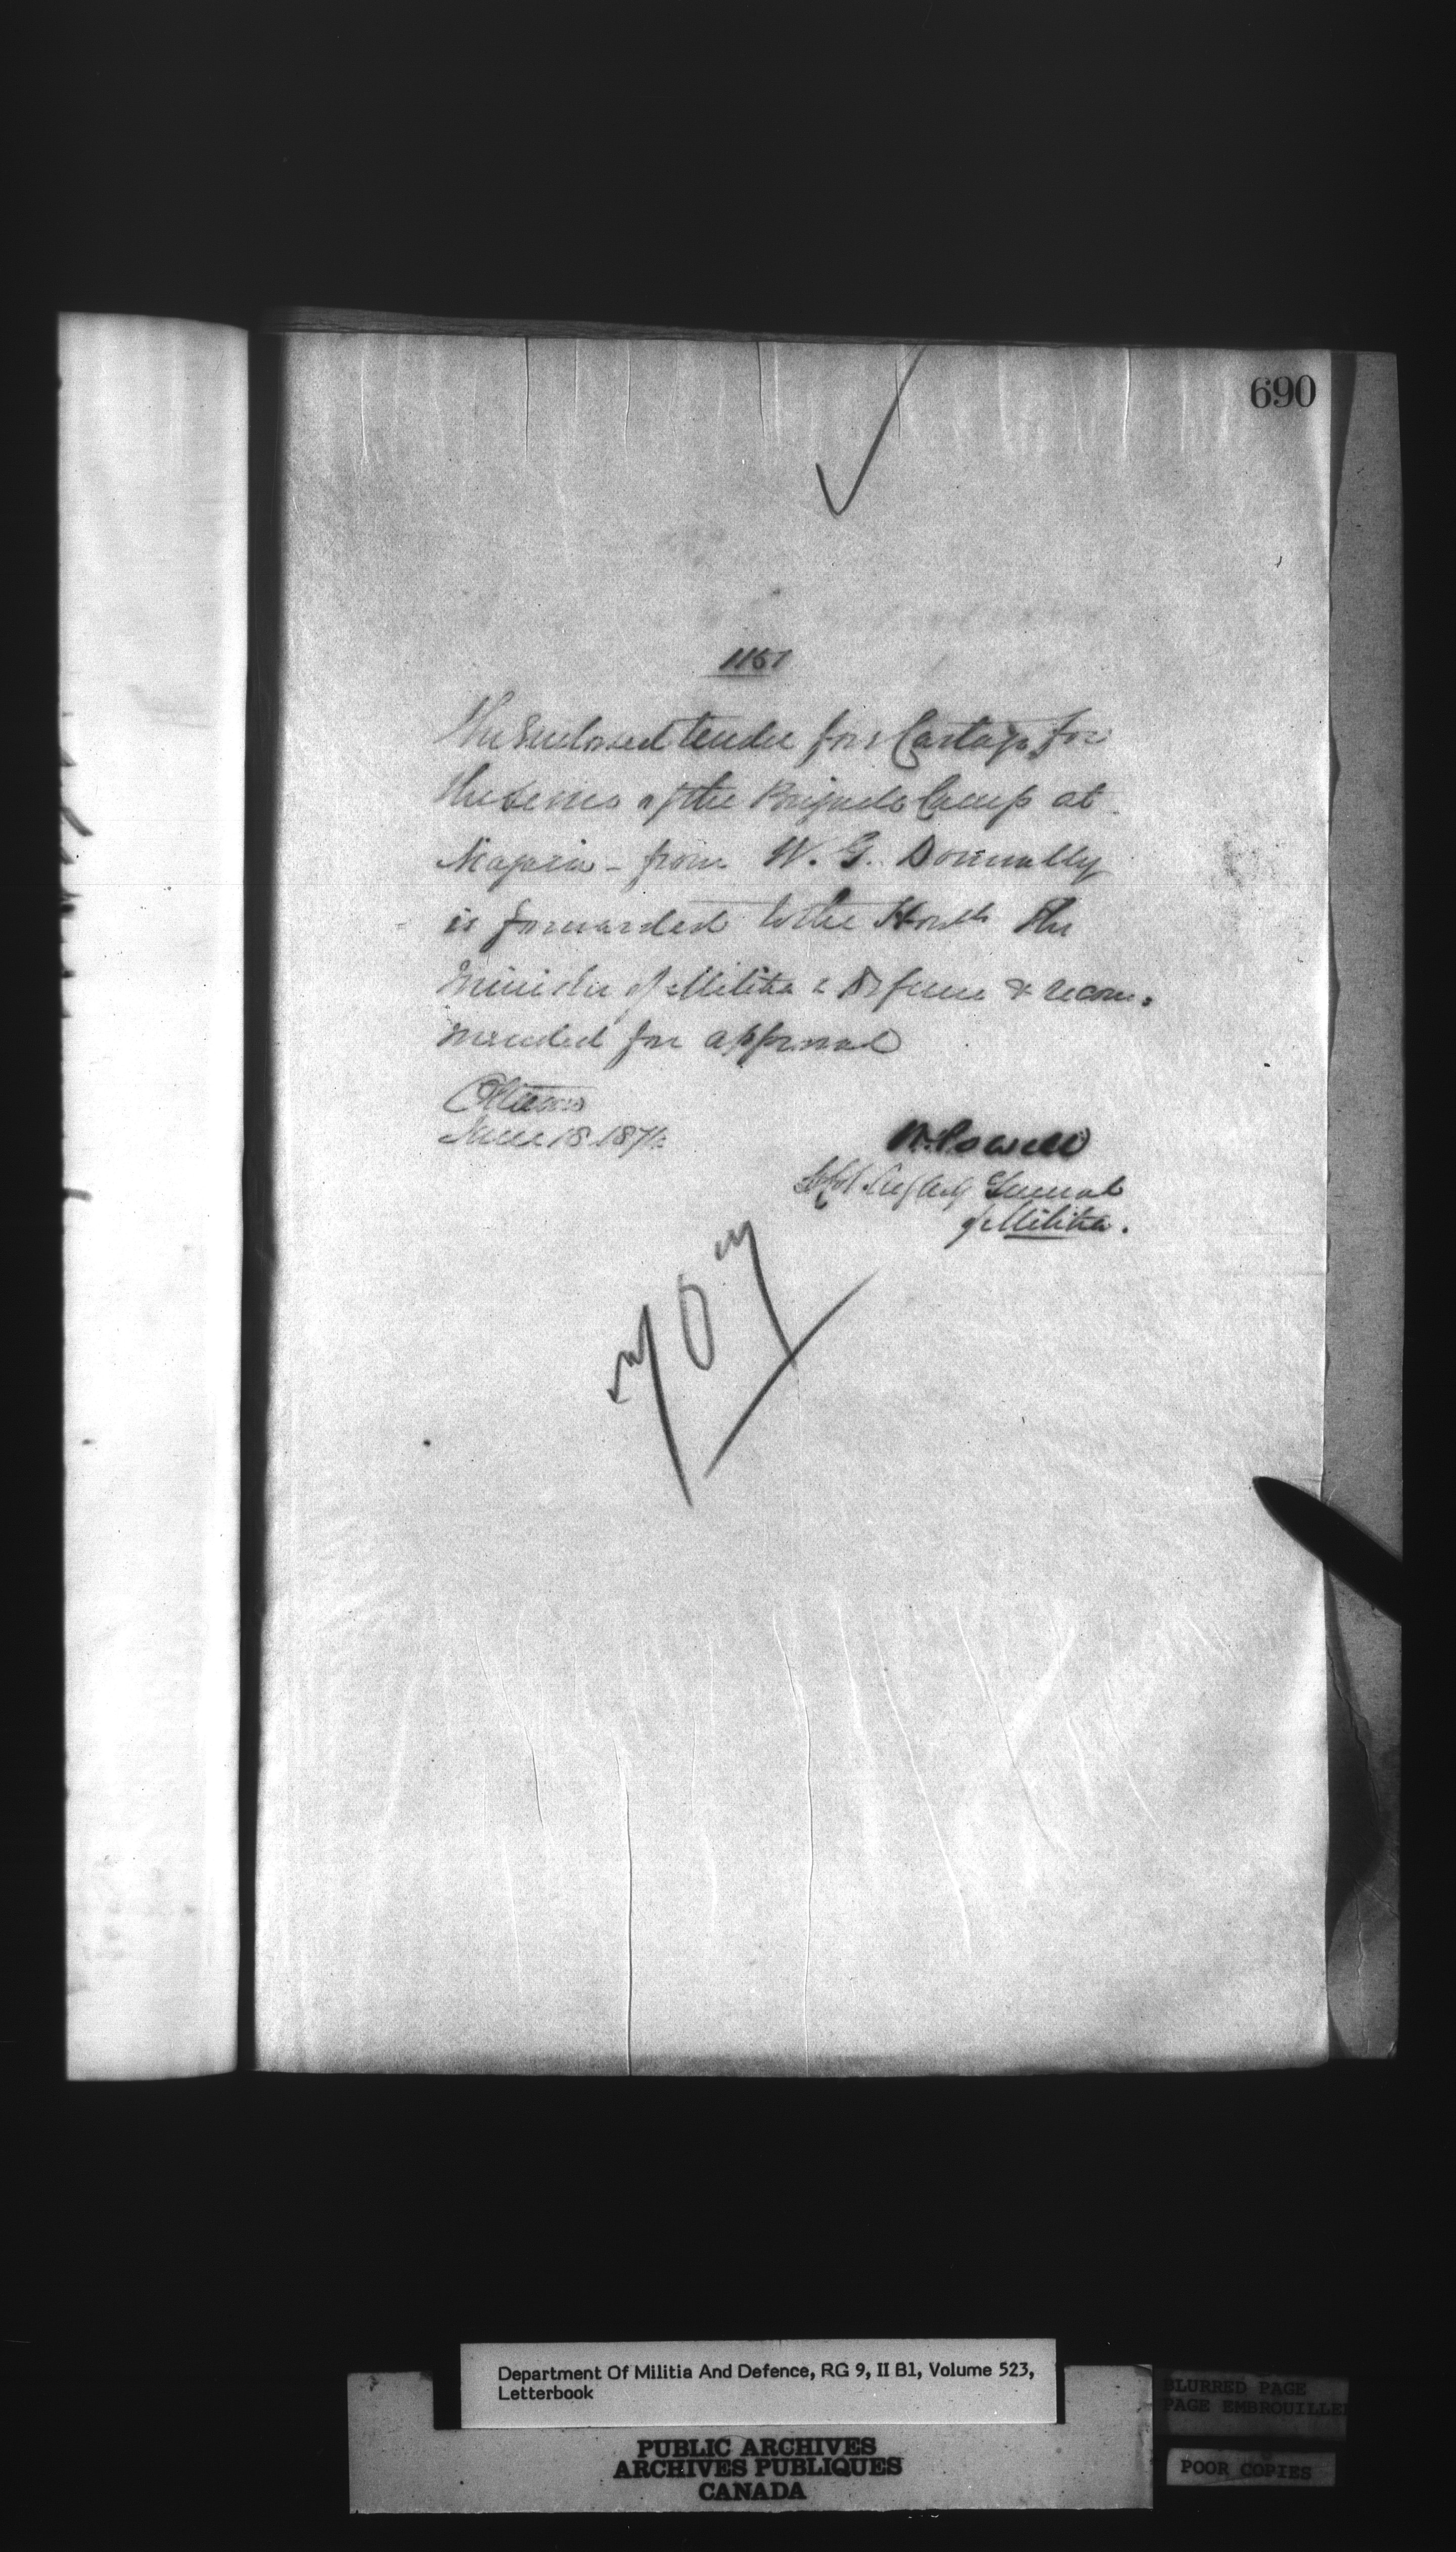 690
1157
The Enclosed tender for Cartage for
the service of the Brigade Camp at
Niagara - from W. G. Donnally
is forwarded to the Honble The
Minister of Militia & Defence & recom-
mended for approval
Ottawa
June 18 187
W. Powell
General
of Militia.
707
Department Of Militia And Defence, RG 9, II B1, Volume 523,
Letterbook
PUBLIC ARCHIVES
ARCHIVES PUBLIQUES
CANADA
BLURRED PAGE
PAGE EMBROUILLE
POOR COPIES